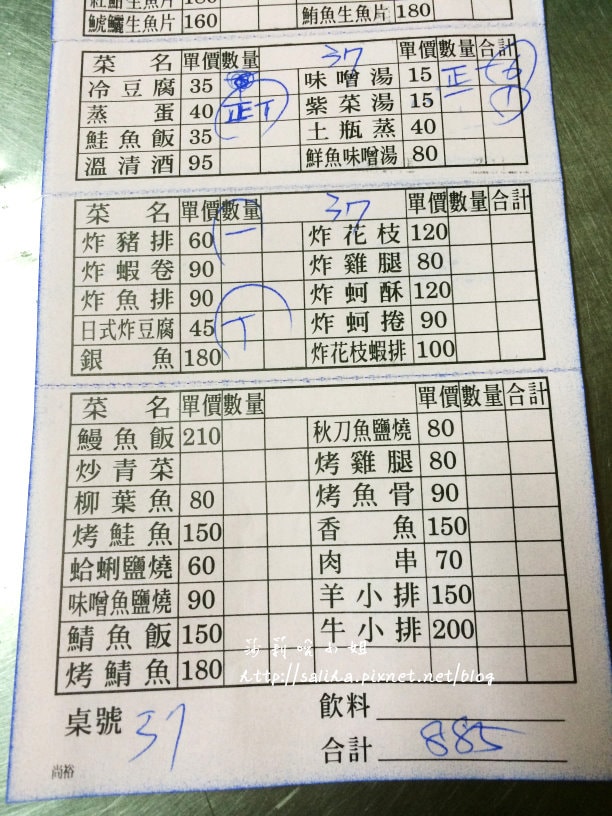 紅魽生魚片 180
鯱鱺生魚片 160 鮪魚生魚片 180
菜名 單價 數量 37 單價 數量 合計
冷豆腐 35 味噌湯 15 正一
蒸蛋 40 正丅 紫菜湯 15
鮭魚飯 35 土瓶蒸 40
溫清酒 95 鮮魚味噌湯 80
菜名 單價 數量 37 單價 數量 合計
炸豬排 60 一 炸花枝 120
炸蝦卷 90 炸雞腿 80
炸魚排 90 炸蚵酥 120
日式炸豆腐 45 丅 炸蚵捲 90
銀魚 180 炸花枝蝦排 100
菜名 單價 數量 單價 數量 合計
鰻魚飯 210 秋刀魚鹽燒 80
炒青菜 烤雞腿 80
柳葉魚 80 烤魚骨 90
烤鮭魚 150 香魚 150
蛤蜊鹽燒 60 肉串 70
味噌魚鹽燒 90 羊小排 150
鯖魚飯 150 牛小排 200
莎莉噯小姐
烤鯖魚 180 http://saliha.pixnet.net/blog
桌號 37 飲料
合計 885
尚裕